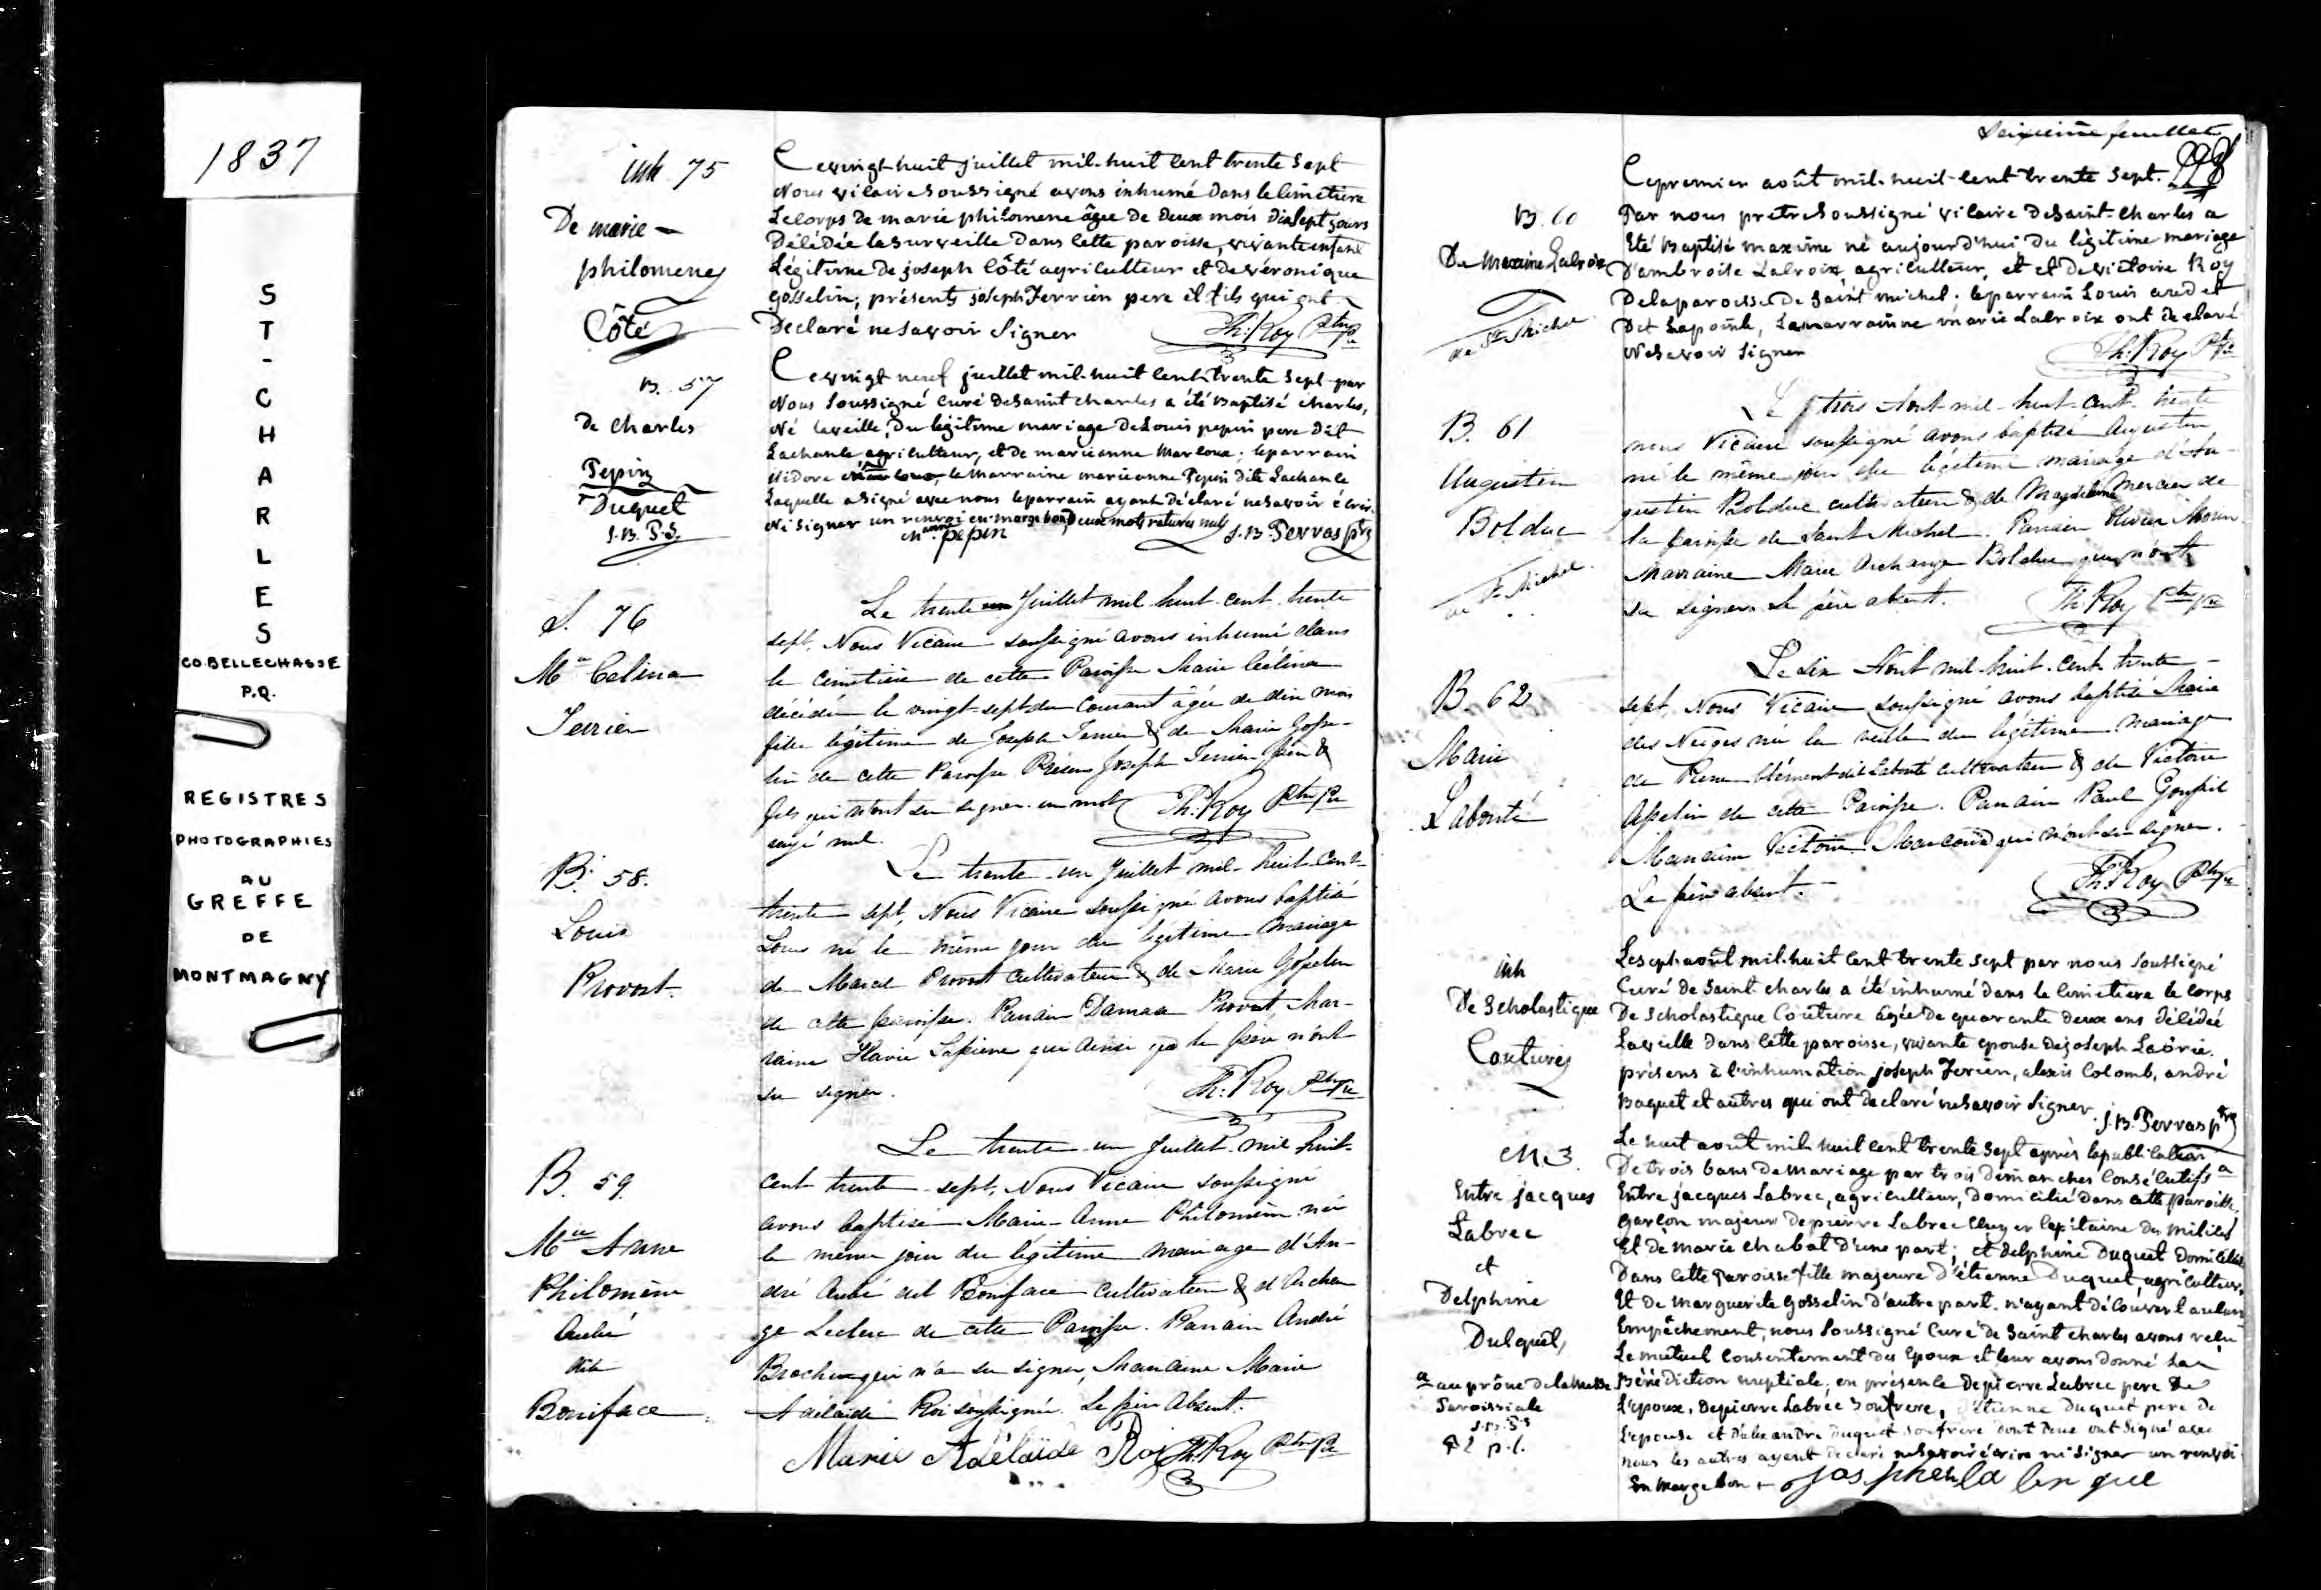 1837
ST-CHARLES
CO. BELLECHASSE
P.Q.
REGISTRES
PHOTOGRAPHIES
AU
GREFFE
DE
MONTMAGNY
inh. 75
De marie
philomene
Côté
Ce vingt-huit juillet mil-huit cent trente sept
Nous vicaire soussigné avons inhumé dans le cimetiere
Le corps de marie philomene âgée de deux mois dix sept jours
Décédée la surveille dans cette paroisse, vivante enfant
Légitime de joseph Côté agriculteur et de véronique
gosselin; présents joseph Terrien pere et fils qui ont
Declaré ne savoir signer Th. Roy Ptre
B. 57
de Charles
Pepin
Duquet
J.B. P.S.
Ce vingt neuf juillet mil-huit cent trente sept par
Nous soussigné curé de saint charles a été Baptisé charles,
Né la veille, du légitime mariage de Louis pepin pere dit
Lachance agriculteur, et de marieanne Marcoux; le parrain
isidore le marraine marieanne Pepin dite Lachance
Laquelle a signé avec nous le parrain ayant déclaré ne savoir écrire
Ni signer un renvoi en marge bon, Deux mots raturés nuls
M anne pepin J.B. Perras ptre
S. 76
Mie Celina
Terrien
Le trente Juillet mil huit cent trente
sept, Nous Vicaire soussigné avons inhumé dans
le cimetière de cette Paroisse Marie Célina
décédée le vingt-sept du courant âgée de dix mois
fille légitime de Joseph Terrien & de Marie Gosse-
lin de cette Paroisse Présens Joseph Terrien père &
fils qui n'ont su signer. un mot Th. Roy Ptre
rayé nul.
B. 58.
Louis
Provost.
Le trente-un Juillet mil-huit-cent-
trente sept, Nous Vicaire soussigné avons baptisé
Louis né le même jour du légitime mariage
de Marcel Provost cultivateur & de Marie Gosselin
de cette paroisse. Parrain Damase Provost, Mar-
raine Flavie Lapierre qui ainsi que le père n'ont
su signer. Th. Roy Ptre
B. 59.
Mie Anne
Philomène
Aubé
dit
Boniface
Le trente-un Juillet mil huit-
cent trente-sept, Nous Vicaire soussigné
avons baptisé Marie-Anne Philomène née
le même jour du légitime mariage d'An-
dré Aubé dit Boniface cultivateur & d'Archan
ge Leclerc de cette Paroisse. Parrain André
Brochu qui n'a su signer, Marraine Marie
Adélaïde Roi soussignée. Le père absent.
Marie Adélaïde Roi Th. Roy Ptre
Seizieme feuillet
B. 60
De Maxime Lacroix
de St Michel
Ce premier août mil-huit-cent trente sept.
Par nous pretre soussigné vicaire de Saint-Charles a
Eté Baptisé maxime né aujourd'hui du légitime mariage
D'ambroise Lacroix agriculteur, et et de victoire Roy
De la paroisse de Saint michel; le parrain Louis
Dit Lapointe, La marraine marie Lacroix ont declaré
Ne savoir signer Th. Roy Ptre
B. 61
Augustin
Bolduc
de St Michel
Le trois Août mil-huit-cent-trente
nous Vicaire soussigné avons baptisé Augustin
né le même jour du légitime mariage d'Au-
gustin Bolduc cultivateur & de Magdeleine Mercier de
la paroisse de Saint Michel. Parrain Olivier
Marraine Marie Archange Bolduc qui n'ont
su signer le père absent. Th. Roy Ptre
B. 62
Marie
Labonté
Le six Août mil huit-cent trente-
sept, Nous Vicaire soussigné avons baptisé Marie
des Neiges née la veille du légitime mariage
de Pierre Clément dit Labonté cultivateur & de Victoire
Asselin de cette Paroisse. Parrain Paul Goupil
Marraine Victoire Marcoux qui n'ont su signer.
Le père absent. Th. Roy Ptre
inh
De Scholastique
Couture
Le sept août mil-huit cent trente sept par nous soussigné
Curé de saint-charles a été inhumé dans le cimetiere le corps
De scholastique Couture âgée de quarante deux ans décédée
La vielle dans cette paroisse, vivante epouse de joseph
présens à l'inhumation joseph Terien, alexis Colomb, andré
Baquet et autres qui ont declaré ne savoir signer J.B. Perras ptre
M. 3.
Entre jacques
Labrec
et
Delphine
Duquet,
a au prône de la messe
Paroissiale
J.B. P.S
Le huit août mil-huit cent trente sept après la publication
De trois bans de mariage par trois dimanches consécutifs a
Entre jacques Labrec, agriculteur, domicilié dans cette paroisse,
garçon majeur de pierre Labrec Capitaine des milices
Et de marie chabot d'une part; et delphine Duquet domiciliée
Dans cette Paroisse fille majeure d'étienne Duquet agriculteur,
Et de marguerite gosselin d'autre part. n'ayant découvert aucun
Empêchement; nous soussigné Curé de saint charles avons reçu
Le mutuel consentement des epoux et leur avons donné la
Bénédiction nuptiale; en présence de pierre Labrec pere de
L'epoux, de pierre Labrec son frere, d'étienne Duquet pere de
L'epouse et d'alexandre Duquet son frere dont deux ont signé avec
nous les autres ayant declaré ne savoir écrire ni signer un renvoi
En marge bon